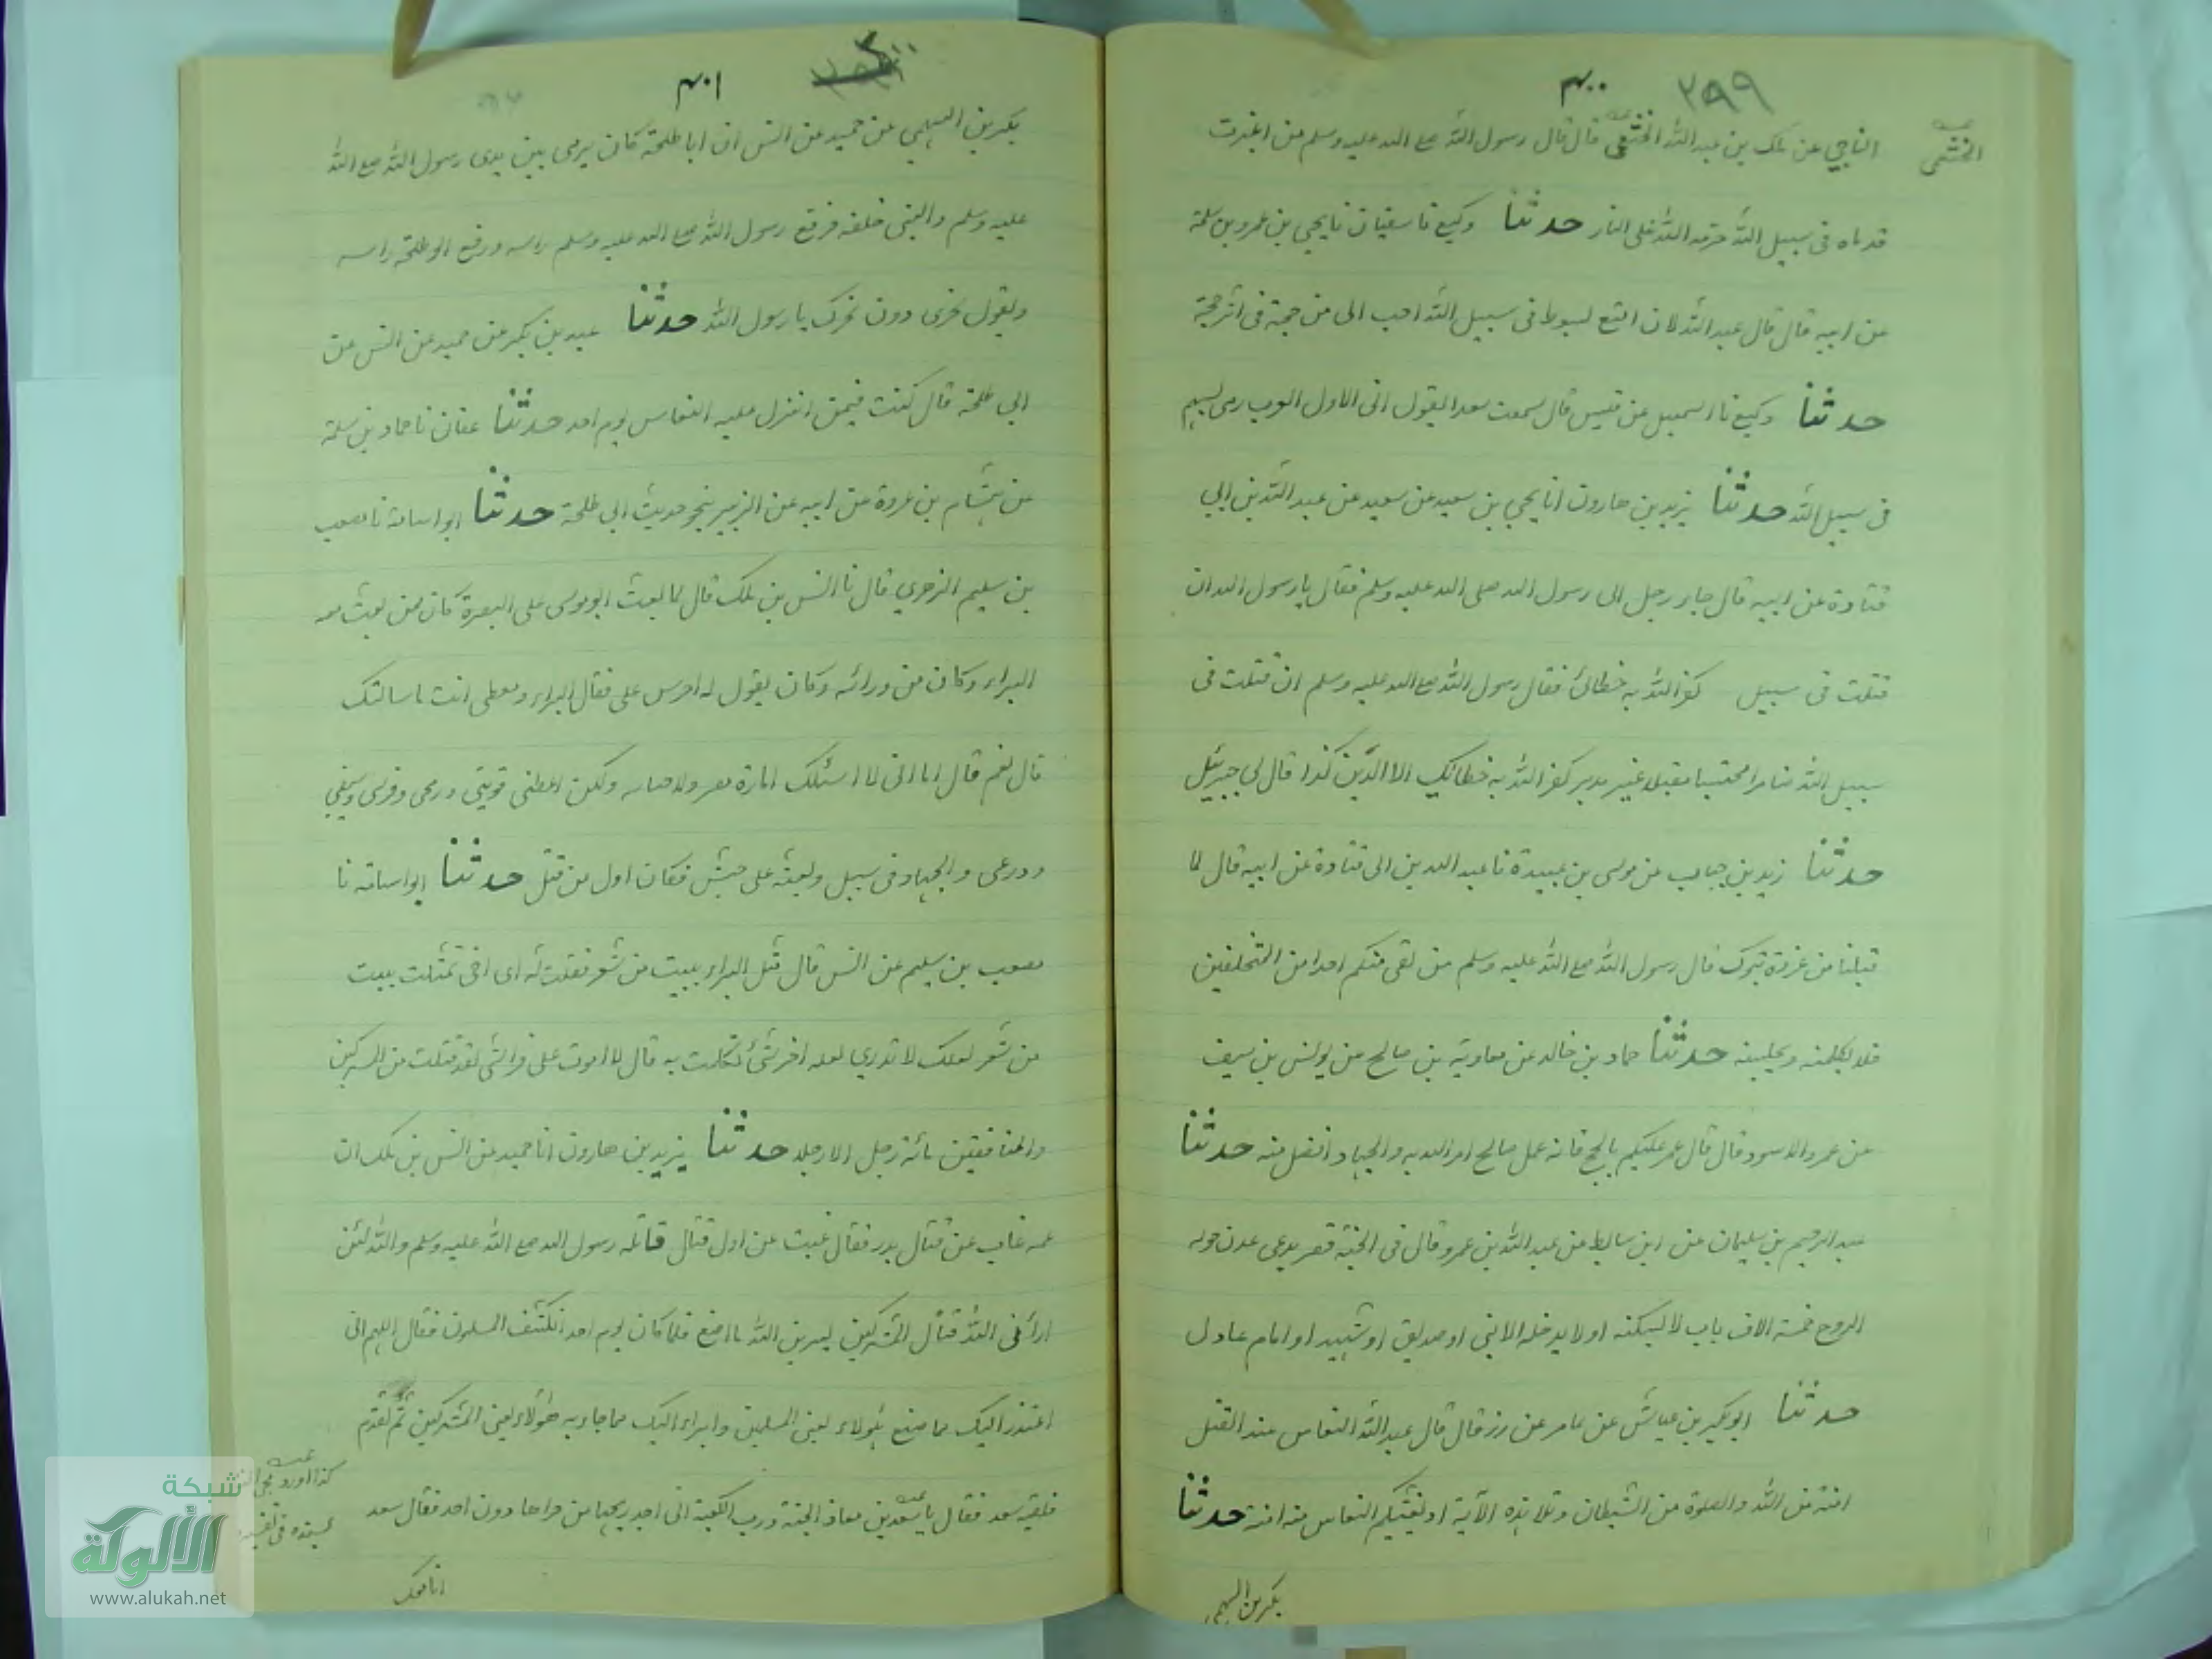 ٤٠٠ ٣٩٩
الخثعمي
الناجي عن ملك بن عبد الله الخثعمي قال قال رسول الله صلع الله عليه وسلم من اغبرت
قدماه في سبيل الله حرمه الله على النار حدثنا وكيع نا سفيان نا يحيى بن عمرو بن سلمة
عن ابيه قال قال عبد الله لان امتع بسوط في سبيل الله احب الى من حجة في اثر حجة
حدثنا وكيع نا اسمعيل عن قيس قال سمعت سعدا يقول انى لاول العرب رمى بسهم
فى سبيل الله حدثنا يزيد بن هارون انا يحيى بن سعيد عن سعيد عن عبد الله بن ابي
قتادة عن ابيه قال جاء رجل الى رسول الله صلى الله عليه وسلم فقال يا رسول الله ان
قتلت فى سبيل كفر الله به خطائ فقال رسول الله صلع الله عليه وسلم ان قتلت فى
سبيل الله صابرا محتسبا مقبلا غير مدبر كفر الله به خطاياك الا الدين كذا قال لى جبرئيل
حدثنا زيد بن حباب عن موسى بن عبيدة نا عبد الله بن ابى قتادة عن ابيه قال لما
قبلنا من غزوة تبوك قال رسول الله صلع الله عليه وسلم من لقى منكم احدا من المتخلفين
فلا يكلمنه ويجلسنه حدثنا حماد بن خالد عن معاوية بن صالح عن يونس بن سيف
عن عمر والاسود قال قال عمر عليكم بالحج فانه عمل صالح امر الله به والجهاد افضل منه حدثنا
عبد الرحيم بن سليمان عن ابن سابط عن عبد الله بن عمرو قال فى الجنة قصر يدعى عدن حوله
الروح خمسة الاف باب لا يسكنه او لا يدخله الا نبى او صديق او شهيد او امام عادل
حدثنا ابو بكير بن عياش عن عامر عن رز قال قال عبد الله النعاس عند القتل
امنة من الله والصلوة من الشيطان وتلا هذه الآية اذ يغشيكم النعاس منه امنة حدثنا
بكر بن السهمي
٤٠١
بكر بن السهمي عن حميد عن انس ان ابا طلحة كان يرمى بين يدى رسول الله صلع الله
عليه وسلم والنبى خلفه فرفع رسول الله صلع الله عليه وسلم راسه ورفع ابو طلحة راسه
ويقول نحرى دون نحرك يا رسول الله حدثنا عبد بن بكر عن حميد عن انس عن
ابي طلحة قال كنت فيمن انزل عليه النعاس يوم احد حدثنا عفان نا حماد بن سلمة
عن هشام بن عروة عن ابيه عن الزبير بنحو حديث ابي طلحة حدثنا ابو اسامة نا مصعب
بن سليم الزهري قال نا انس بن ملك قال لما بعث ابو موسى على البصرة كان ممن بعث معه
البراء وكان من ورائه وكان يقول له احرس على فقال البراء ومعطى انت ما سالتك
قال نعم قال اما انى لا اسئلك امارة مصر ولا ولكن اعطنى قوسى ورمحى وفرسى وسيفى
ودرعى والجهاد فى سبيل وبعثه على جيش فكان اول من قتل حدثنا ابو اسامة نا
مصعب بن سليم عن انس قال تمثل البراء ببيت من شعر فقلت له اى اخى تمثلت ببيت
من شعر لعلك لا تدري لعله اخر شئ تكلمت به قال لا اموت على فراشى لقد قتلت من المشركين
والمنافقين مائة رجل الا رجلا حدثنا يزيد بن هارون انا حميد عن انس بن ملك ان
عمه غاب عن قتال بدر فقال غبت عن اول قتال قاتله رسول الله صلع الله عليه وسلم والله لئن
ارانى الله قتال المشركين ليرين الله ما اصنع فلما كان يوم احد انكشف المسلون فقال اللهم انى
اعتذر اليك مما صنع هٰولاء يعنى المسلمين وابراء اليك مما جاء به هٰولاء يعنى المشركين ثم تقدم
فلقيه سعد فقال يا سعد بن معاذ الجنة ورب الكعبة انى اجد ريحها من دون احد فقال سعد
كذا اورد
انا معك
شبكة
الألوكة
www.alukah.net